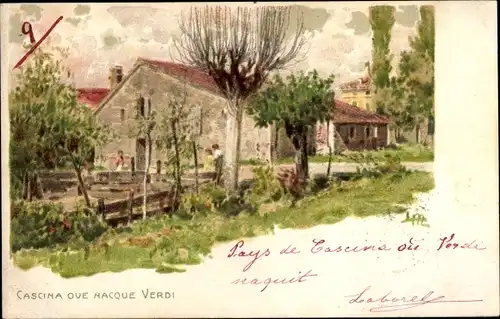 9
CASCINA OVE NACQUE VERDI
Pays de Cascina où Verdi
naquit